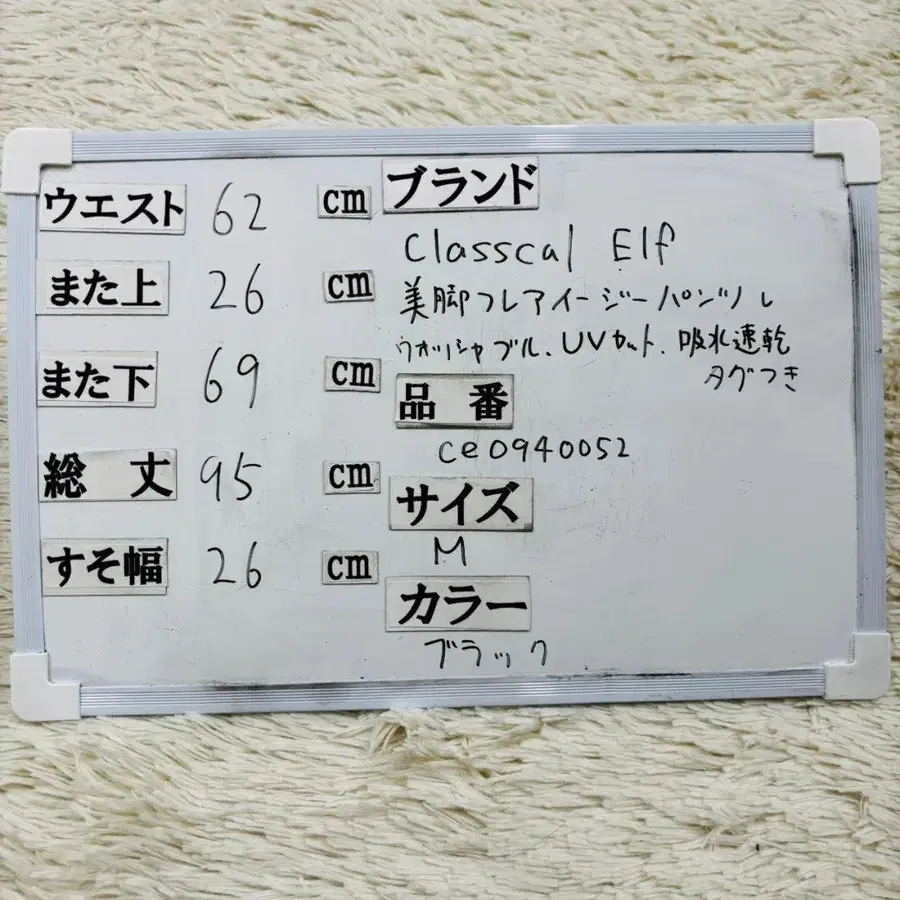 ウエスト 62 cm
また上 26 cm
また下 69 cm
総 丈 95 cm
すそ幅 26 cm
ブランド
Classcal Elf
美脚フレアイージーパンツ
ウォッシャブル、UVカット、吸水速乾
タグつき
品 番
ce0940052
サイズ
M
カラー
ブラック